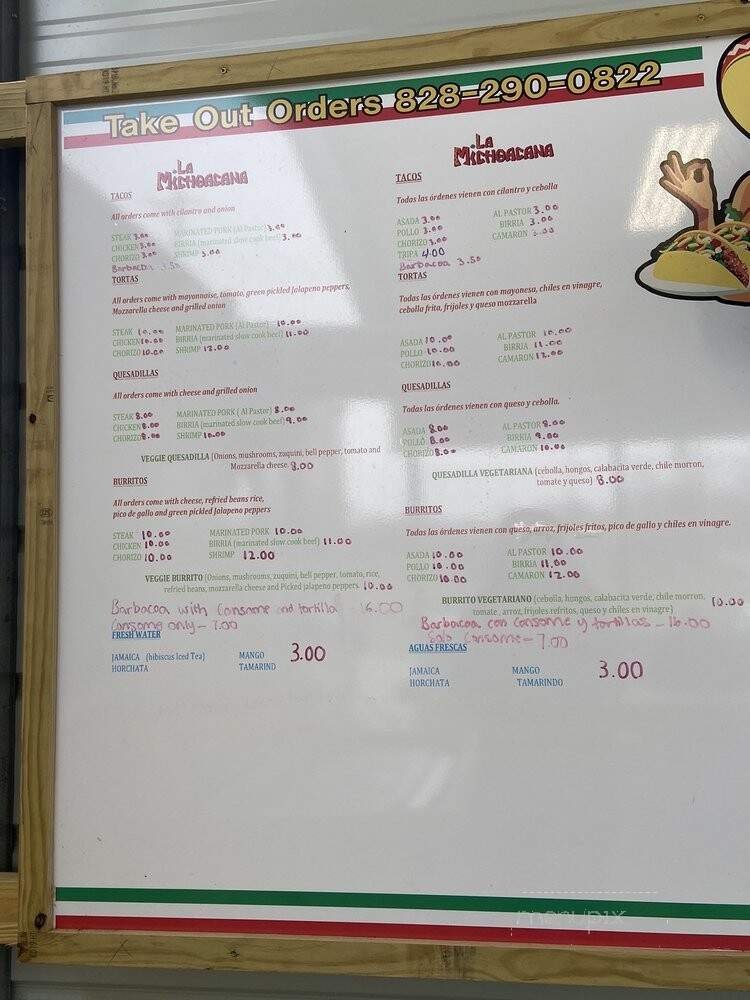 Take Out Orders 828-290-0822
LA MICHOACANA
TACOS
All orders come with cilantro and onion
STEAK 3.00 MARINATED PORK (Al Pastor) 3.00
CHICKEN 3.00 BIRRIA (marinated slow cook beef) 3.00
CHORIZO 3.00 SHRIMP 3.00
Barbacoa 3.50
TORTAS
All orders come with mayonnaise, tomato, green pickled Jalapeno peppers,
Mozzarella cheese and grilled onion
STEAK 10.00 MARINATED PORK (Al Pastor) 10.00
CHICKEN 10.00 BIRRIA (marinated slow cook beef) 11.00
CHORIZO 10.00 SHRIMP 12.00
QUESADILLAS
All orders come with cheese and grilled onion
STEAK 8.00 MARINATED PORK ( Al Pastor) 8.00
CHICKEN 8.00 BIRRIA (marinated slow cook beef) 9.00
CHORIZO 8.00 SHRIMP 10.00
VEGGIE QUESADILLA (Onions, mushrooms, zuquini, bell pepper, tomato and
Mozzarella cheese. 8.00
BURRITOS
All orders come with cheese, refried beans rice,
pico de gallo and green pickled Jalapeno peppers
STEAK 10.00 MARINATED PORK 10.00
CHICKEN 10.00 BIRRIA (marinated slow cook beef) 11.00
CHORIZO 10.00 SHRIMP 12.00
VEGGIE BURRITO (Onions, mushrooms, zuquini, bell pepper, tomato, rice,
refried beans, mozzarella cheese and Picked jalapeno peppers. 10.00
Barbacoa with Consome and tortilla - 16.00
Consome only - 7.00
FRESH WATER
JAMAICA (hibiscus Iced Tea) MANGO 3.00
HORCHATA TAMARIND
LA MICHOACANA
TACOS
Todas las órdenes vienen con cilantro y cebolla
ASADA 3.00 AL PASTOR 3.00
POLLO 3.00 BIRRIA 3.00
CHORIZO 3.00 CAMARON 3.00
TRIPA 4.00
Barbacoa 3.50
TORTAS
Todas las órdenes vienen con mayonesa, chiles en vinagre,
cebolla frita, frijoles y queso mozzarella
ASADA 10.00 AL PASTOR 10.00
POLLO 10.00 BIRRIA 11.00
CHORIZO 10.00 CAMARON 12.00
QUESADILLAS
Todas las órdenes vienen con queso y cebolla.
ASADA 8.00 AL PASTOR 8.00
POLLO 8.00 BIRRIA 9.00
CHORIZO 8.00 CAMARON 10.00
QUESADILLA VEGETARIANA (cebolla, hongos, calabacita verde, chile morron,
tomate y queso) 8.00
BURRITOS
Todas las órdenes vienen con queso, arroz, frijoles fritos, pico de gallo y chiles en vinagre.
ASADA 10.00 AL PASTOR 10.00
POLLO 10.00 BIRRIA 11.00
CHORIZO 10.00 CAMARON 12.00
BURRITO VEGETARIANO (cebolla, hongos, calabacita verde, chile morron, 10.00
tomate , arroz, frijoles refritos, queso y chiles en vinagre)
Barbacoa con Consome y tortillas - 16.00
Solo Consome - 7.00
AGUAS FRESCAS
JAMAICA MANGO 3.00
HORCHATA TAMARINDO
menupix